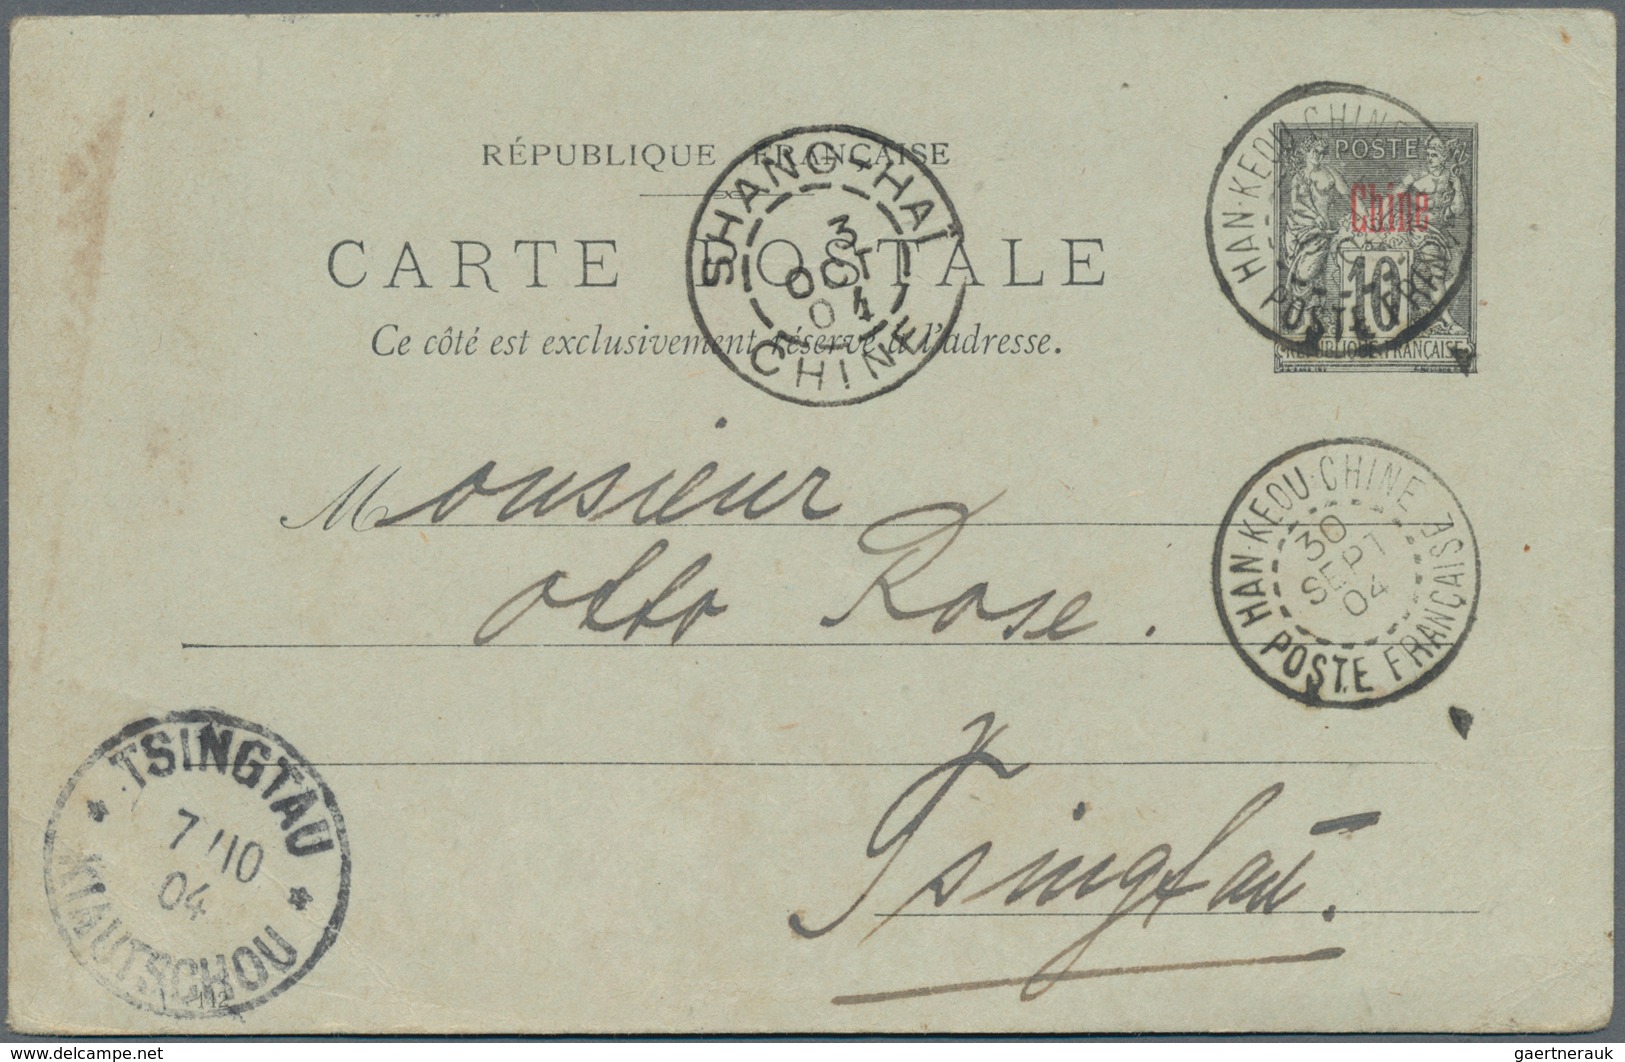 RÉPUBLIQUE FRANÇAISE
CARTE POSTALE
Ce côté est exclusivement réservé à l'adresse.
SHANG-HAÏ
3
OCT
04
CHINE
HAN-KEOU-CHINE
POSTE FRANÇAISE
POSTE
Chine
10
REPUBLIQUE FRANÇAISE
Monsieur
Otto Rose.
Tsingtau.
HAN-KEOU-CHINE
30
SEPT
04
POSTE FRANÇAISE
TSINGTAU
7/10
04
KIAUTSCHOU
112
www.delcampe.net
gaertnerauk